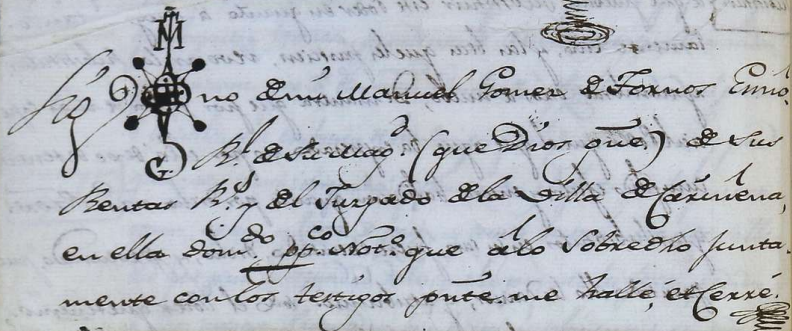 M
Sig no de mi Manuel Gomez de Tornos Essno.
G Rl. de su Magd. (que Dios gue) de sus
Rentas Rs. y del Juzgado de la Villa de Cariñena,
en ella domdo. ppco. Noto. que a lo Sobredho Junta-
mente con los testigos pnte. me hallé, et Cerré.